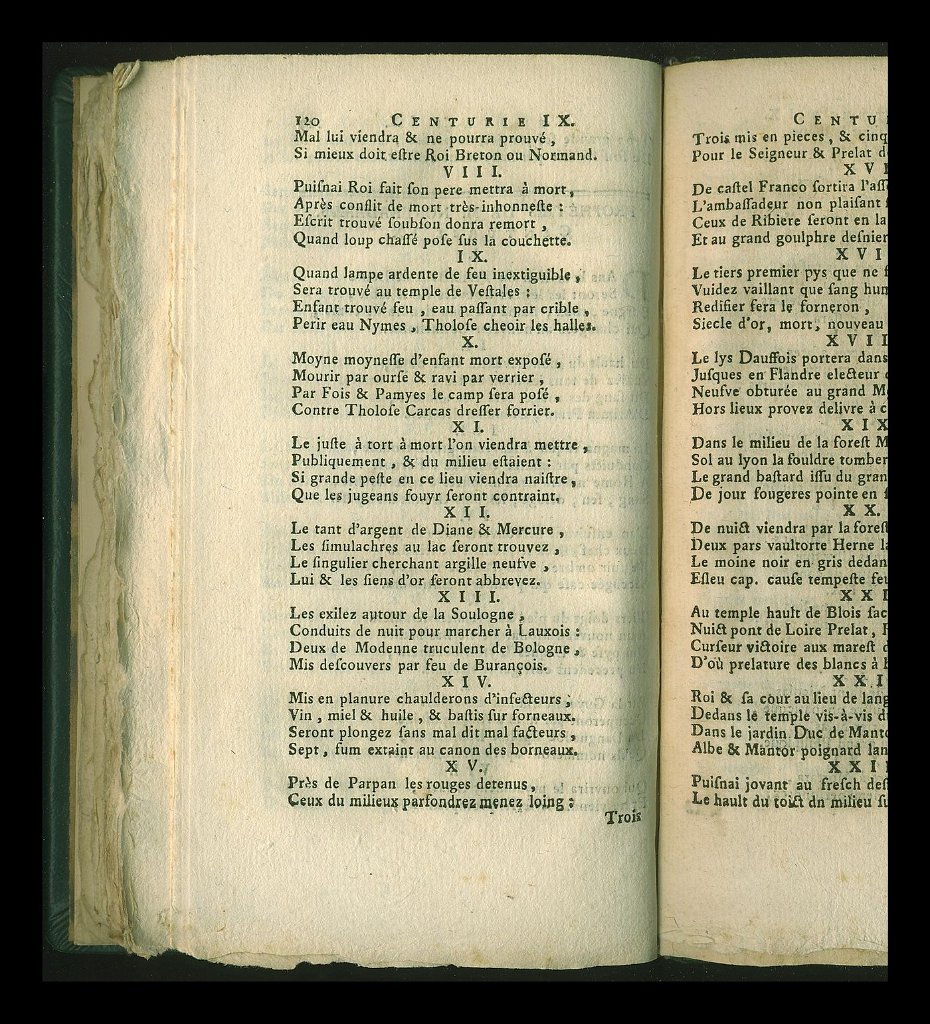 120 CENTURIE IX.
Mal lui viendra & ne pourra prouvé,
Si mieux doit eſtre Roi Breton ou Normand.
VIII.
Puiſnai Roi fait ſon pere mettra à mort,
Après conſlit de mort très-inhonneſte :
Eſcrit trouvé ſoubſon donra remort,
Quand loup chaſſé poſe ſus la couchette.
IX.
Quand lampe ardente de feu inextiguible,
Sera trouvé au temple de Veſtales :
Enfant trouvé feu, eau paſſant par crible,
Perir eau Nymes, Tholoſe cheoir les halles.
X.
Moyne moyneſſe d'enfant mort expoſé,
Mourir par ourſe & ravi par verrier,
Par Fois & Pamyes le camp ſera poſé,
Contre Tholoſe Carcas dreſſer forrier.
XI.
Le juſte à tort à mort l'on viendra mettre,
Publiquement, & du milieu eſtaient :
Si grande peſte en ce lieu viendra naiſtre,
Que les jugeans fouyr ſeront contraint.
XII.
Le tant d'argent de Diane & Mercure,
Les ſimulachres au lac ſeront trouvez,
Le ſingulier cherchant argille neufve,
Lui & les ſiens d'or ſeront abbrevez.
XIII.
Les exilez autour de la Soulogne,
Conduits de nuit pour marcher à Lauxois :
Deux de Modenne truculent de Bologne,
Mis deſcouvers par feu de Burançois.
XIV.
Mis en planure chaulderons d'infecteurs,
Vin, miel & huile, & baſtis ſur forneaux.
Seront plongez ſans mal dit mal facteurs,
Sept, fum extaint au canon des borneaux.
XV.
Près de Parpan les rouges detenus,
Ceux du milieux parfondrez menez loing :
Trois
CENTU
Trois mis en pieces, & cinq
Pour le Seigneur & Prelat d
XVI
De caſtel Franco ſortira l'aſſ
L'ambaſſadeur non plaiſant ſ
Ceux de Ribiere ſeront en la
Et au grand goulphre deſnier
XVI
Le tiers premier pys que ne f
Vuidez vaillant que ſang hum
Redifier ſera le forneron,
Siecle d'or, mort, nouveau
XVII
Le lys Dauffois portera dans
Juſques en Flandre electeur
Neufve obturée au grand M
Hors lieux provez delivre à c
XIX
Dans le milieu de la foreſt M
Sol au lyon la fouldre tomber
Le grand baſtard iſſu du gran
De jour fougeres pointe en
XX.
De nuict viendra par la foreſt
Deux pars vaultorte Herne la
Le moine noir en gris dedan
Eſleu cap. cauſe tempeſte feu
XXI
Au temple hault de Blois ſac
Nuict pont de Loire Prelat,
Curſeur victoire aux mareſt d
D'où prelature des blancs à
XXI
Roi & ſa cour au lieu de lang
Dedans le temple vis-à-vis d
Dans le jardin Duc de Manto
Albe & Mantor poignard lan
XXII
Puiſnai jovant au freſch deſ
Le hault du toict dn milieu ſu